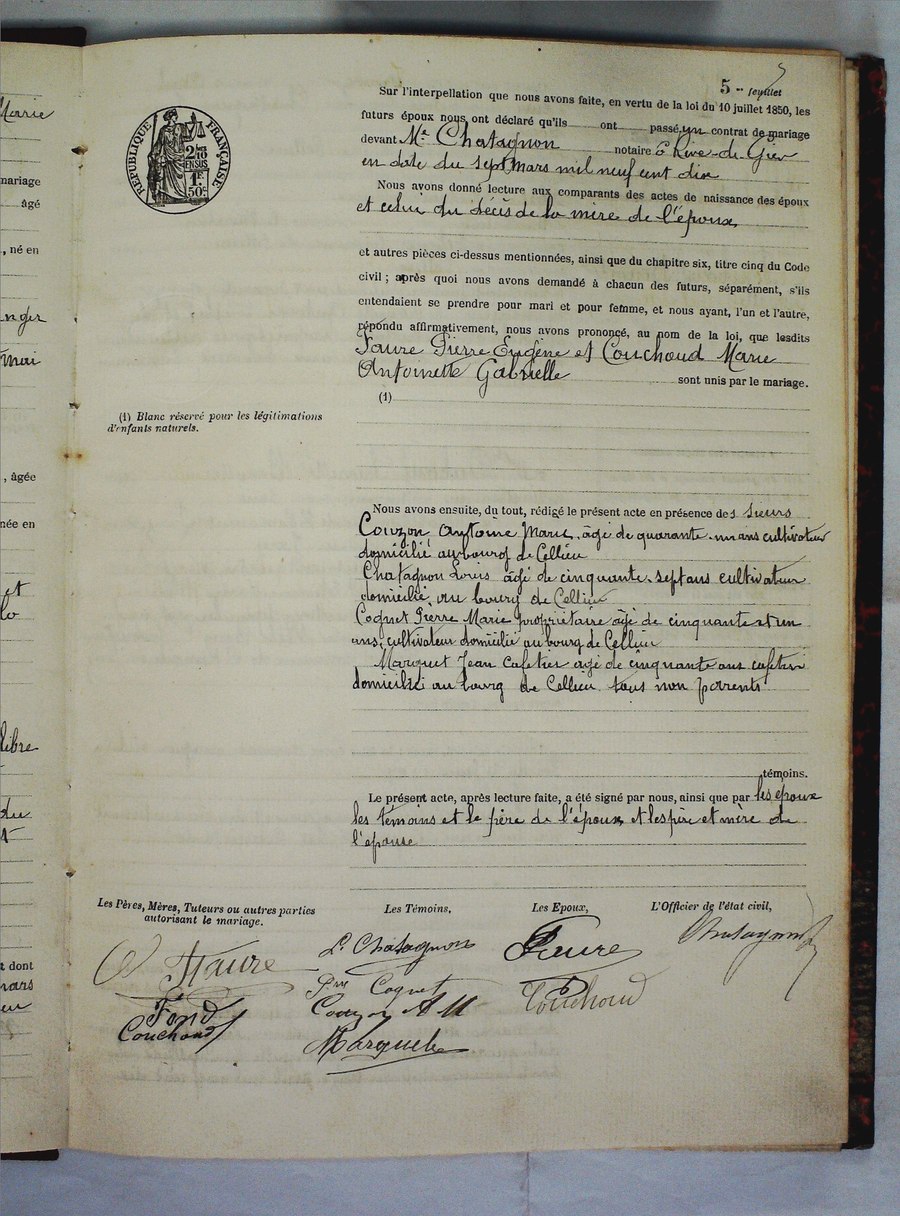 Marie
mariage
âgé
, né en
mai
, âgée
née en
et
libre
du
t dont
mars
5
5 -- feuillet
RÉPUBLIQUE FRANÇAISE
2/10
EN SUS
1F
50c
Sur l'interpellation que nous avons faite, en vertu de la loi du 10 juillet 1850, les
futurs époux nous ont déclaré qu'ils ont passé un contrat de mariage
devant Me Chatagnon notaire à Rive-de-Gier
en date du sept mars mil neuf cent dix
Nous avons donné lecture aux comparants des actes de naissance des époux
et celui du décès de la mère de l'époux,
et autres pièces ci-dessus mentionnées, ainsi que du chapitre six, titre cinq du Code
civil ; après quoi nous avons demandé à chacun des futurs, séparément, s'ils
entendaient se prendre pour mari et pour femme, et nous ayant, l'un et l'autre,
répondu affirmativement, nous avons prononcé, au nom de la loi, que lesdits
Faure Pierre Eugène et Couchoud Marie
Antoinette Gabrielle sont unis par le mariage.
(1)
(1) Blanc réservé pour les légitimations
d'enfants naturels.
Nous avons ensuite, du tout, rédigé le présent acte en présence des sieurs
Couzon Antoine Marie, âgé de quarante-un ans cultivateur
domicilié au bourg de Cellieu
Chatagnon Louis âgé de cinquante-sept ans cultivateur
domicilié au bourg de Cellieu
Coquet Pierre Marie propriétaire âgé de cinquante et un
ans, cultivateur domicilié au bourg de Cellieu
Marquet Jean Cafetier âgé de cinquante ans cafetier
domicilié au bourg de Cellieu tous non parents
témoins.
Le présent acte, après lecture faite, a été signé par nous, ainsi que par les époux
les témoins et le père de l'époux, et les père et mère de
l'épouse
Les Pères, Mères, Tuteurs ou autres parties
autorisant le mariage.
Les Témoins,
Les Epoux,
L'Officier de l'état civil,
Faure
Fond
Couchoud
L. Chatagnon
Pre Coquet
Couzon A M
Marquet
Faure
Couchoud
Chatagnon